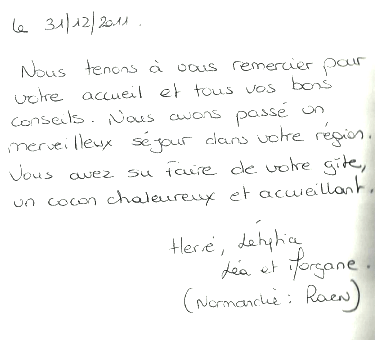 le 31/12/2011.
Nous tenons à vous remercier pour
votre accueil et tous vos bons
conseils. Nous avons passé un
merveilleux séjour dans votre région.
Vous avez su faire de votre gîte,
un cocon chaleureux et accueillant.
Hervé, Létytia
Léa et Morgane.
(Normandie : Rouen)